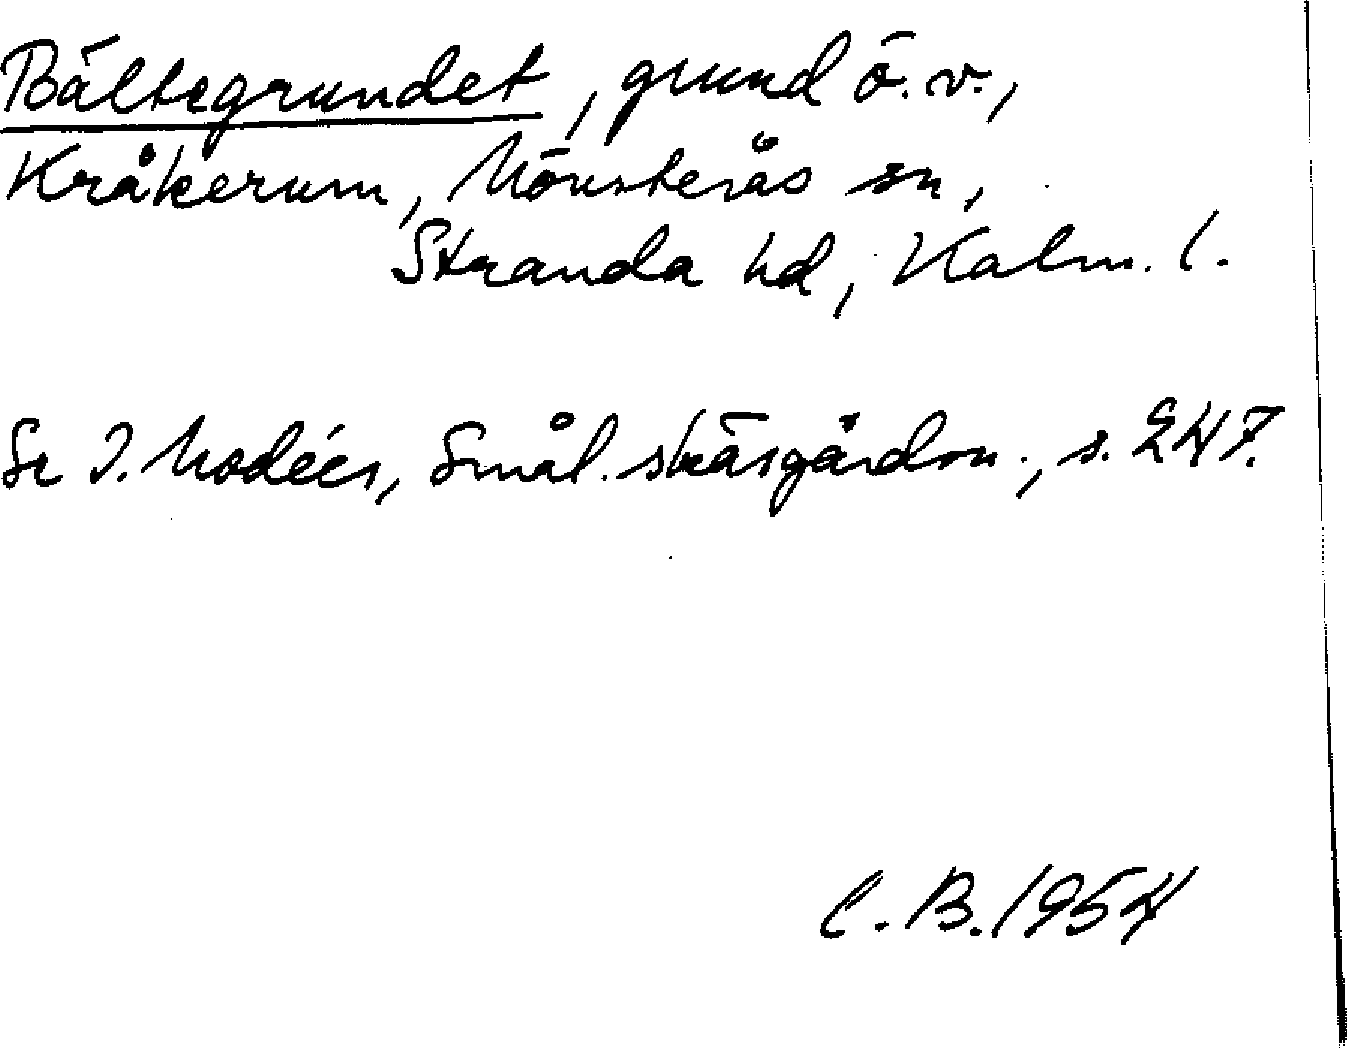 Bältegrundet, grund ö.v.,
Kråkerum, Mönsterås sn,
Stranda hd, Kalm. l.
Se I. Modéer, Smål. skärsgårdsn., s. 247.
C. B. 1954